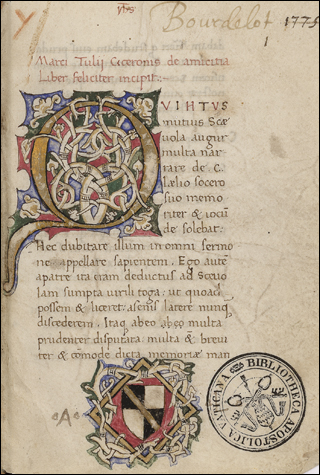 yħs
Bourdelot 1775
1
Marci Tulii Ciceronis de amicitia
Liber feliciter incipit:-
QVINTVS
mutius Scæ
uola augur
multa nar
rare de C.
Lælio socero
suo memo
riter & iocũ
de solebat.
Nec dubitare illum in omni sermo
ne appellare sapientem. Ego autẽ
a patre ita eram deductus ad Scæuo
lam sumpta uirili toga: ut quoad
possem & liceret, a senis latere nunq̃
discederem. Itaq; ab eo multa
prudenter disputata: multa & breui
ter & cõmode dicta memoriæ man
·A·
BIBLIOTHECA APOSTOLICA VATICANA